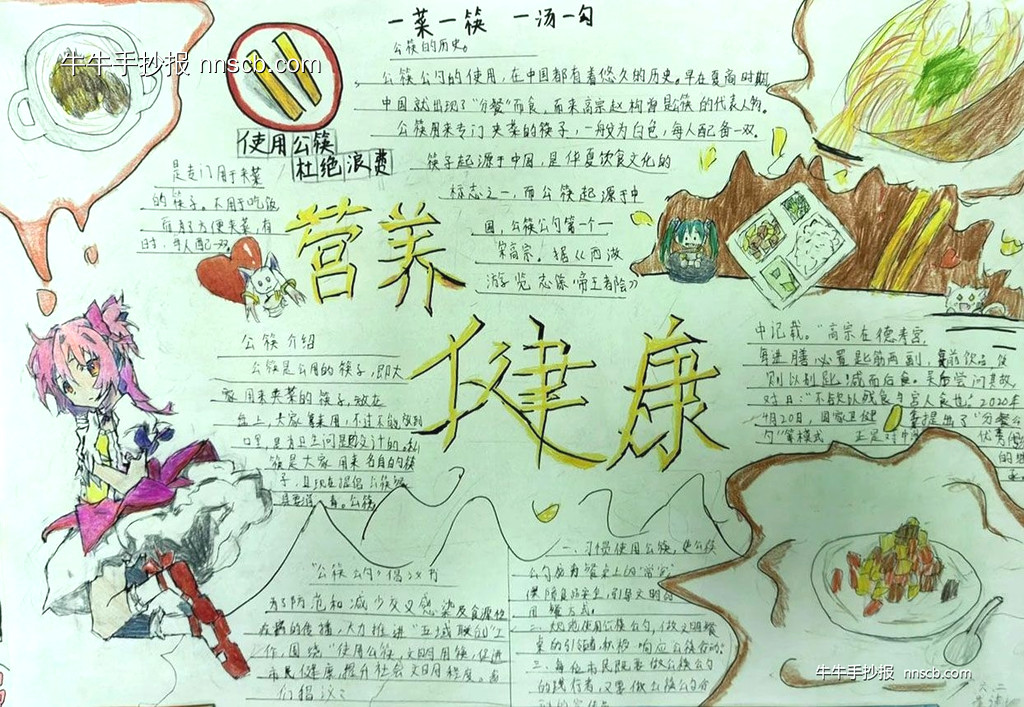 牛牛手抄报 nnscb.com
一菜一筷 一汤一勾
公筷的历史。
公筷公勺的使用，在中国都有着悠久的历史。早在夏商时期，
中国就出现了"分餐"而食，而宋高宗赵构首是公筷的代表人物。
公筷用来专门夹菜的筷子，一般为白色，每人配备一双。
筷子起源于中国，是华夏饮食文化的
标志之一，而公筷起源于中
国，公筷公勺第一个一
宋高宗。据《西湖
游览志馀·帝王都会》
中记载。"高宗在德寿宫，
每进膳必置匙箸两副，
则以别
对曰："不欲以残食与宫人食也。"2020年
4月20日，国家卫健 提出了"分餐公
勺"等模式 正定 优秀
的
使用公筷
杜绝浪费
是专门用于夹菜
的筷子。不用于吃饭
而为了方便夹菜，有
时，每人配一双
营养
健康
公筷介绍
公筷是公用的筷子，即大
家用来夹菜的筷子，放在
台上，大家算来用，不过不能放到
口里，是为卫生问题的设计的。私
筷是大家用来各自的筷
子，且现在提倡公筷
公筷
"公筷公勺"倡议书
为了防范和减少交叉感染及食源性
疾病的传播，大力推进"五城联创"工
作，围绕"使用公筷，文明用餐，促进
市民健康，提升社会文明程度。我
们倡议：
一、习惯使用公筷，使公筷
公勺成为餐桌上的"常客"
保障食品安全，引导文明的
用餐方式。
二、规范使用公筷公勺，做文明餐
桌的引领者，积极响应公筷行动。
三、每位市民既要做公筷公勺
的践行者，又要做公筷公勺
的宣传员
牛牛手抄报 nnscb.com
六.二